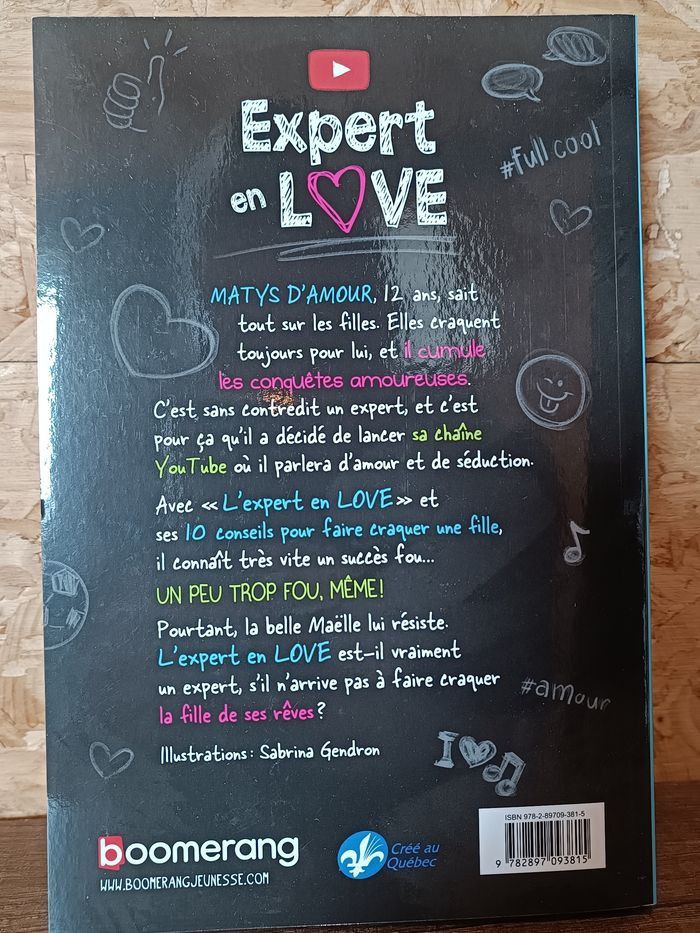 Expert
en LOVE
#full cool
MATYS D'AMOUR, 12 ans, sait
tout sur les filles. Elles craquent
toujours pour lui, et il cumule
les conquêtes amoureuses.
C'est sans contredit un expert, et c'est
pour ça qu'il a décidé de lancer sa chaîne
YouTube où il parlera d'amour et de séduction.
Avec « L'expert en LOVE » et
ses 10 conseils pour faire craquer une fille,
il connaît très vite un succès fou...
UN PEU TROP FOU, MÊME !
Pourtant, la belle Maëlle lui résiste.
L'expert en LOVE est-il vraiment
un expert, s'il n'arrive pas à faire craquer
la fille de ses rêves ?
#amour
Illustrations : Sabrina Gendron
I
boomerang
WWW.BOOMERANGJEUNESSE.COM
Créé au
Québec
ISBN 978-2-89709-381-5
9 782897 093815